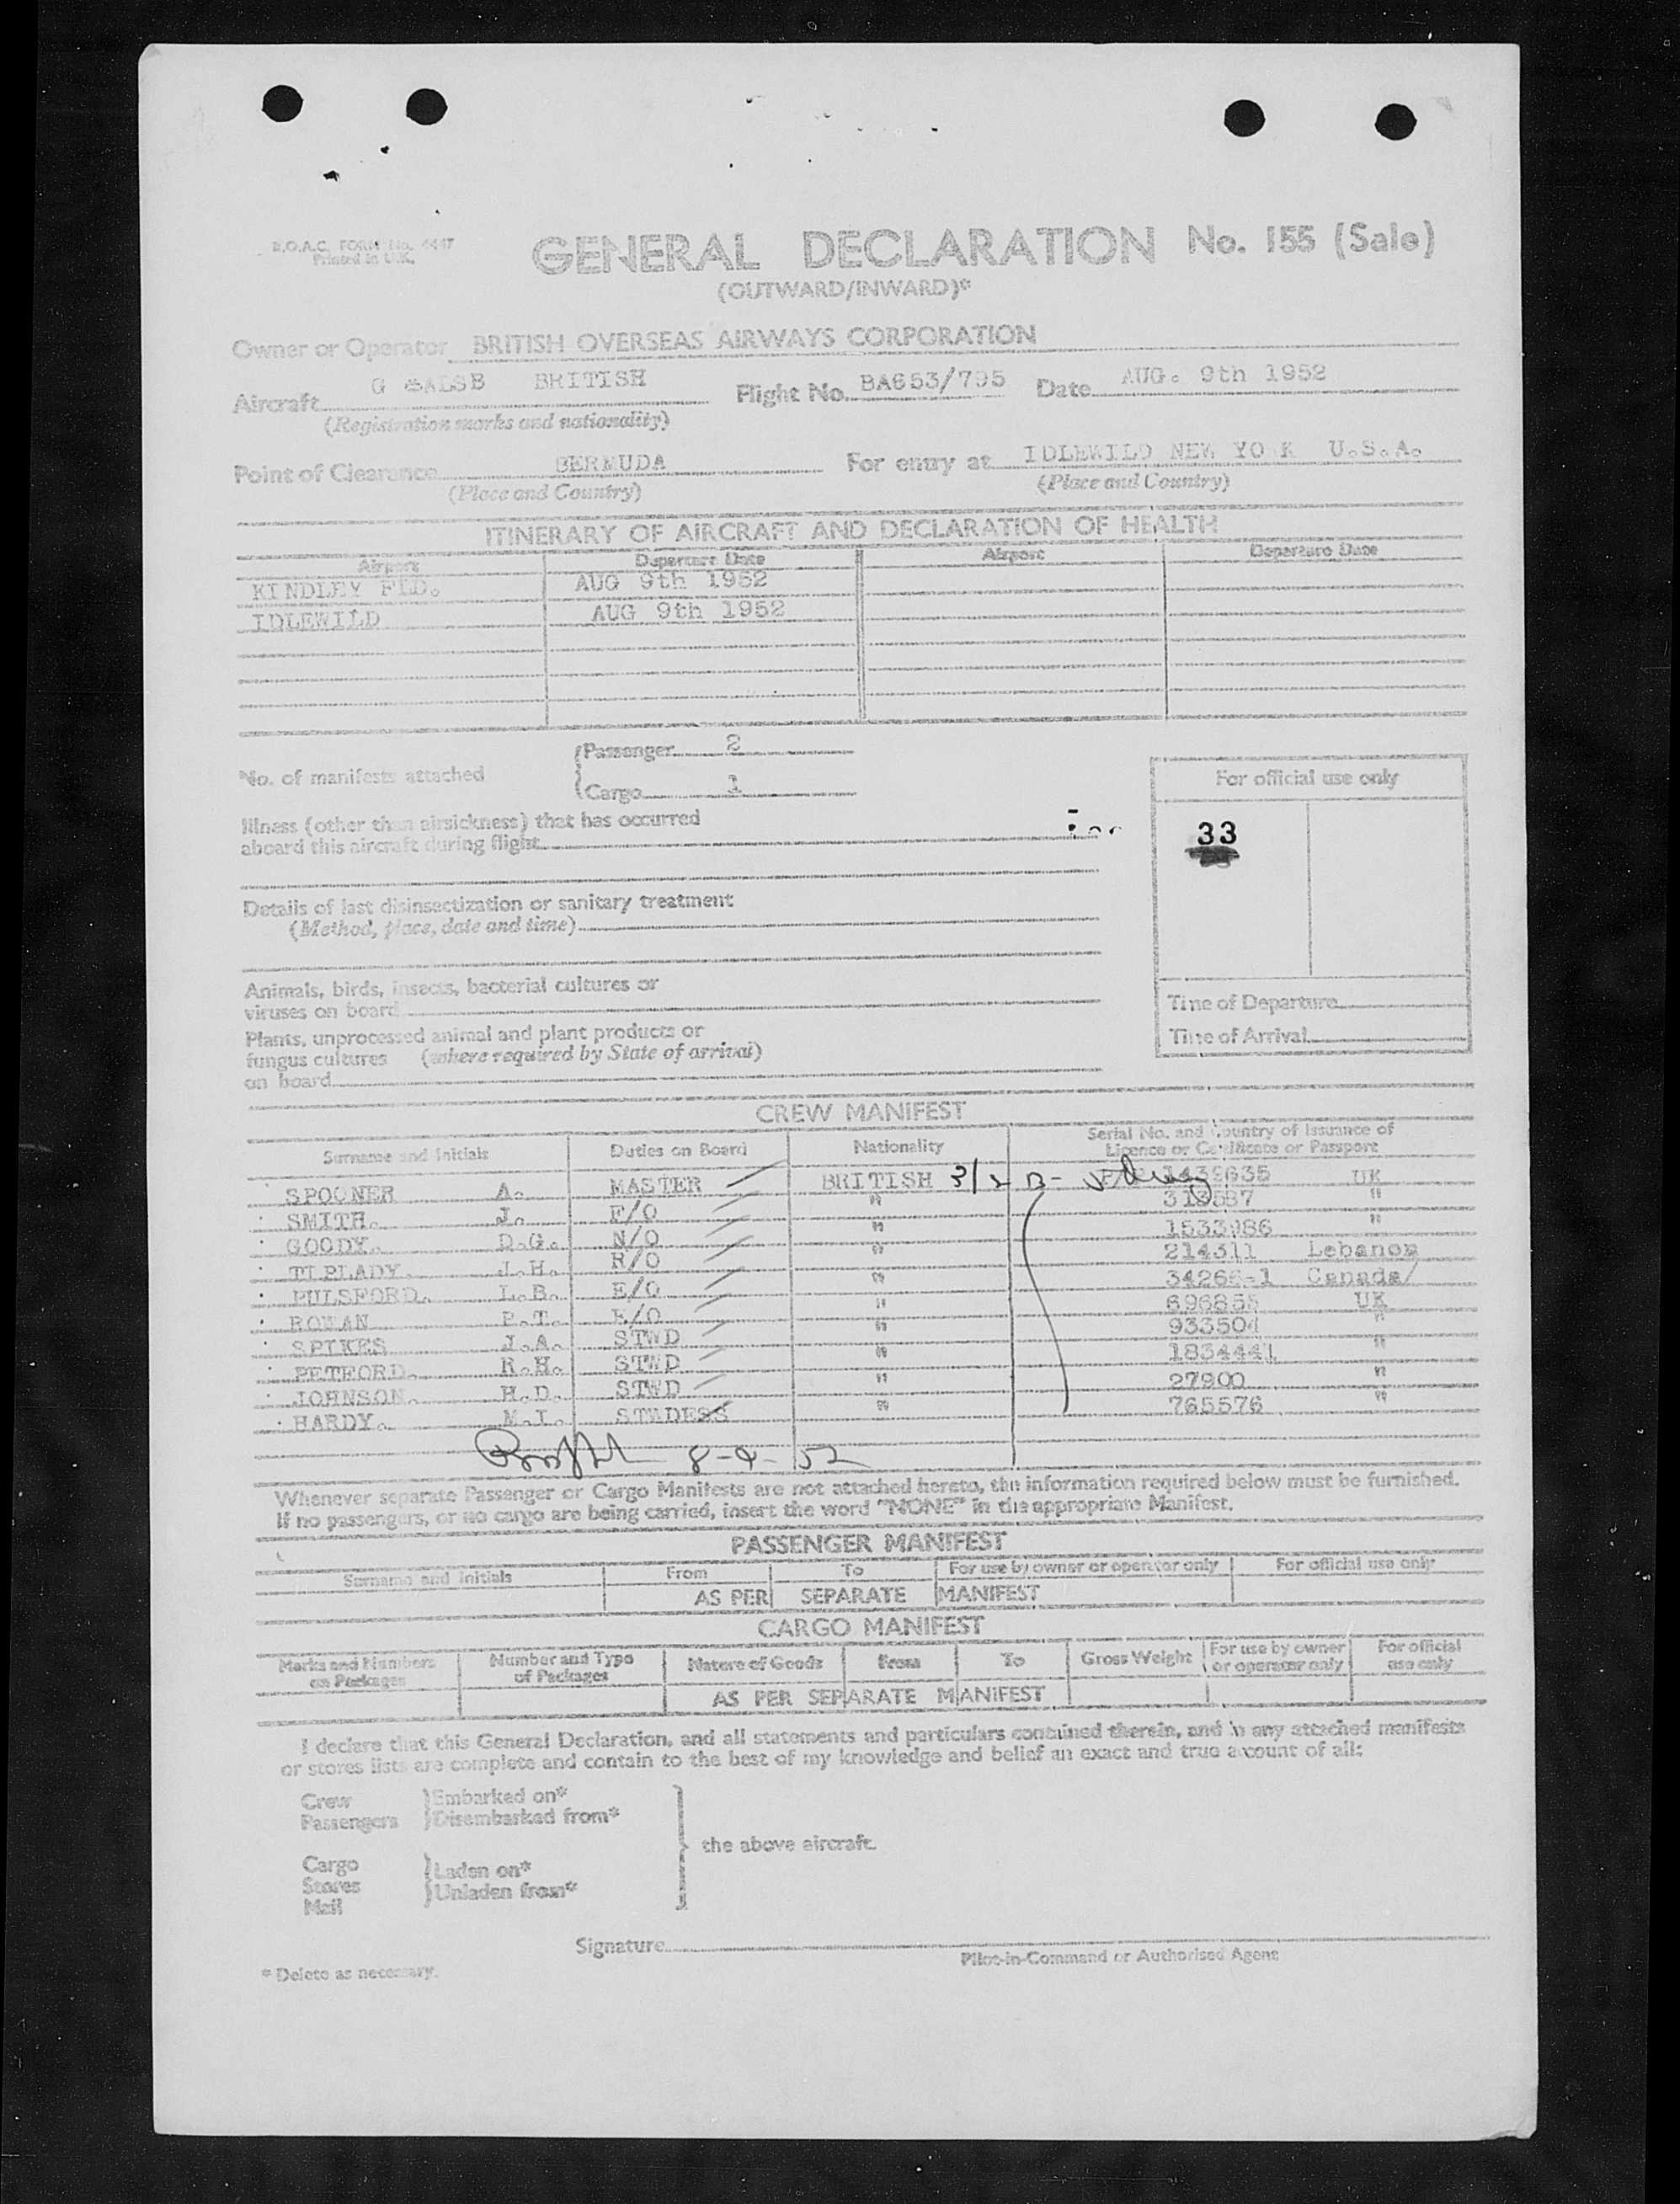 B.O.A.C. FORM No. 4447
Printed in U.K.
GENERAL DECLARATION No. 155 (Sale)
(OUTWARD/INWARD)*
Owner or Operator BRITISH OVERSEAS AIRWAYS CORPORATION
Aircraft G ALSB BRITISH Flight No. BA653/795 Date AUG. 9th 1952
(Registration marks and nationality)
Point of Clearance BERMUDA For entry at IDLEWILD NEW YO K U.S.A.
(Place and Country) (Place and Country)
ITINERARY OF AIRCRAFT AND DECLARATION OF HEALTH
Airport Departure Date Airport Departure Date
KINDLEY FLD. AUG 9th 1952
IDLEWILD AUG 9th 1952
No. of manifests attached
Passenger 2
Cargo 1
For official use only
33
Illness (other than airsickness) that has occurred
aboard this aircraft during flight
Details of last disinsectization or sanitary treatment
(Method, place, date and time)
Animals, birds, insects, bacterial cultures or
viruses on board
Time of Departure
Plants, unprocessed animal and plant products or
fungus cultures (where required by State of arrival)
on board
Time of Arrival
CREW MANIFEST
Surname and Initials Duties on Board Nationality Serial No. and Country of Issuance of
Licence or Certificate or Passport
SPOONER A. MASTER BRITISH 1439635 UK
SMITH. J. F/O " 313587 "
GOODY. D.G. N/O " 1533986 "
TIPLADY. J.H. R/O " 214311 Lebanon
PULSFORD. L.B. E/O " Canada/
ROWAN P.T. E/O " 696855 UK
SPIKES J.A. STWD " 933504 "
PETFORD. R.H. STWD " 1834441 "
JOHNSON. H.D. STWD " 27900 "
HARDY. M.I. STWDESS " 765576 "
8-9-52
Whenever separate Passenger or Cargo Manifests are not attached hereto, the information required below must be furnished.
If no passengers, or no cargo are being carried, insert the word "NONE" in the appropriate Manifest.
PASSENGER MANIFEST
Surname and Initials From To For use by owner or operator only For official use only
AS PER SEPARATE MANIFEST
CARGO MANIFEST
Marks and Numbers on Packages Number and Type of Packages Nature of Goods From To Gross Weight For use by owner or operator only For official use only
AS PER SEPARATE MANIFEST
I declare that this General Declaration, and all statements and particulars contained therein, and in any attached manifests
or stores lists are complete and contain to the best of my knowledge and belief an exact and true account of all:
Crew Embarked on*
Passengers Disembarked from*
the above aircraft.
Cargo Laden on*
Stores Unladen from*
Mail
Signature
Pilot-in-Command or Authorised Agent
* Delete as necessary.